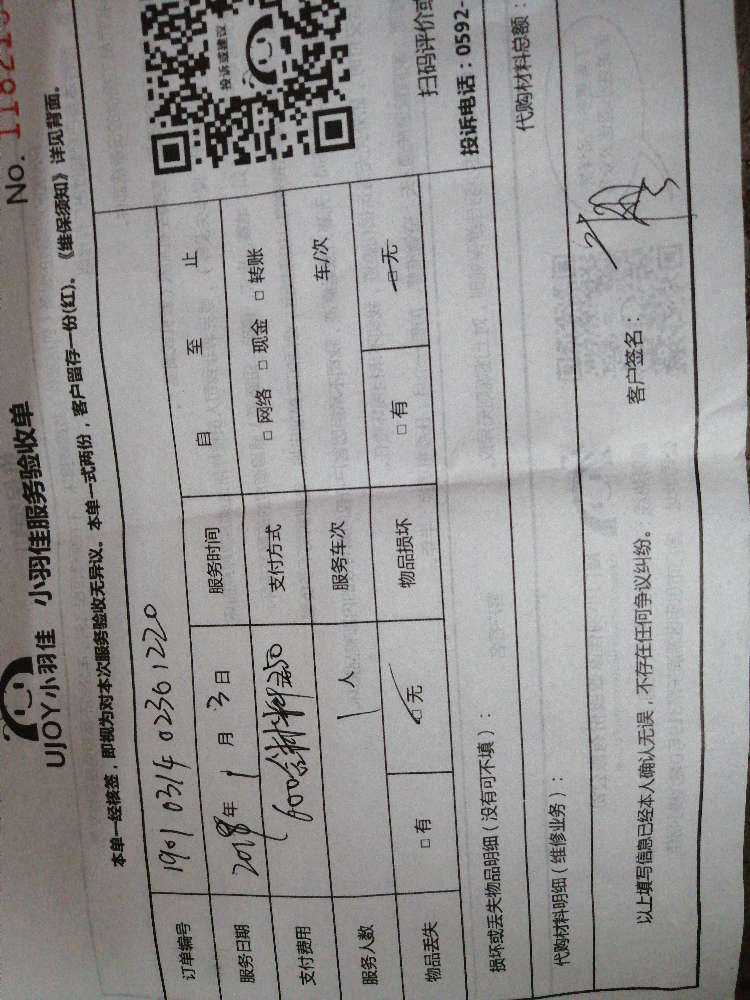 No. 118216
UJOY小羽佳 小羽佳服务验收单
本单一经核签，即视为对本次服务验收无异议。本单一式两份，客户留存一份(红)。《维保须知》详见背面。
订单编号 1901 0314 0236 1220
服务日期 2018年 1 月 3 日 服务时间 自 至 止
支付费用 600含材料250 支付方式 □ 网络 □ 现金 □ 转账
服务人数 1 人 服务车次 车/次
物品丢失 □ 有 □ 无 物品损坏 □ 有 □ 无
投诉或建议
扫码评价或
投诉电话：0592-
损坏或丢失物品明细（没有可不填）：
代购材料明细（维修业务）：
代购材料总额：
以上填写信息已经本人确认无误，不存在任何争议纠纷。 客户签名：